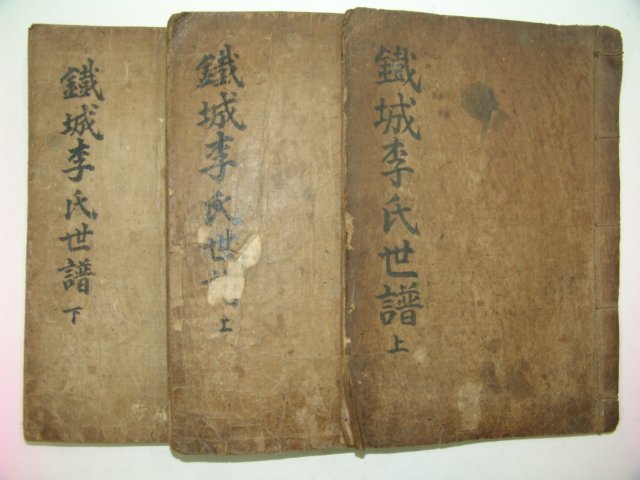 鐵城李氏世譜
上
鐵城李氏世
上
鐵城李氏世譜
下